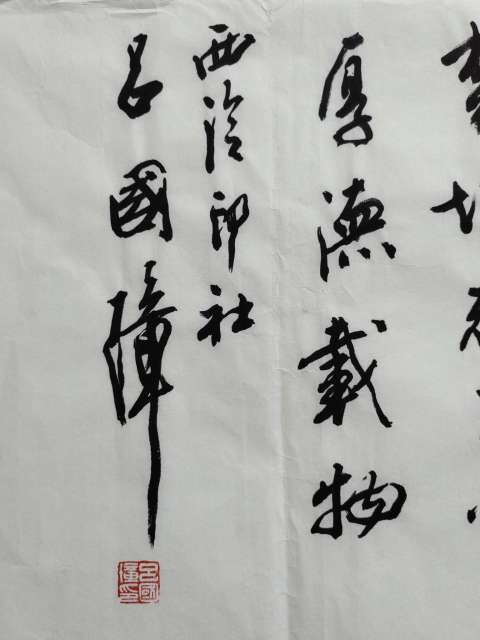 厚德載物
西泠印社
吕國璋
吕國璋印